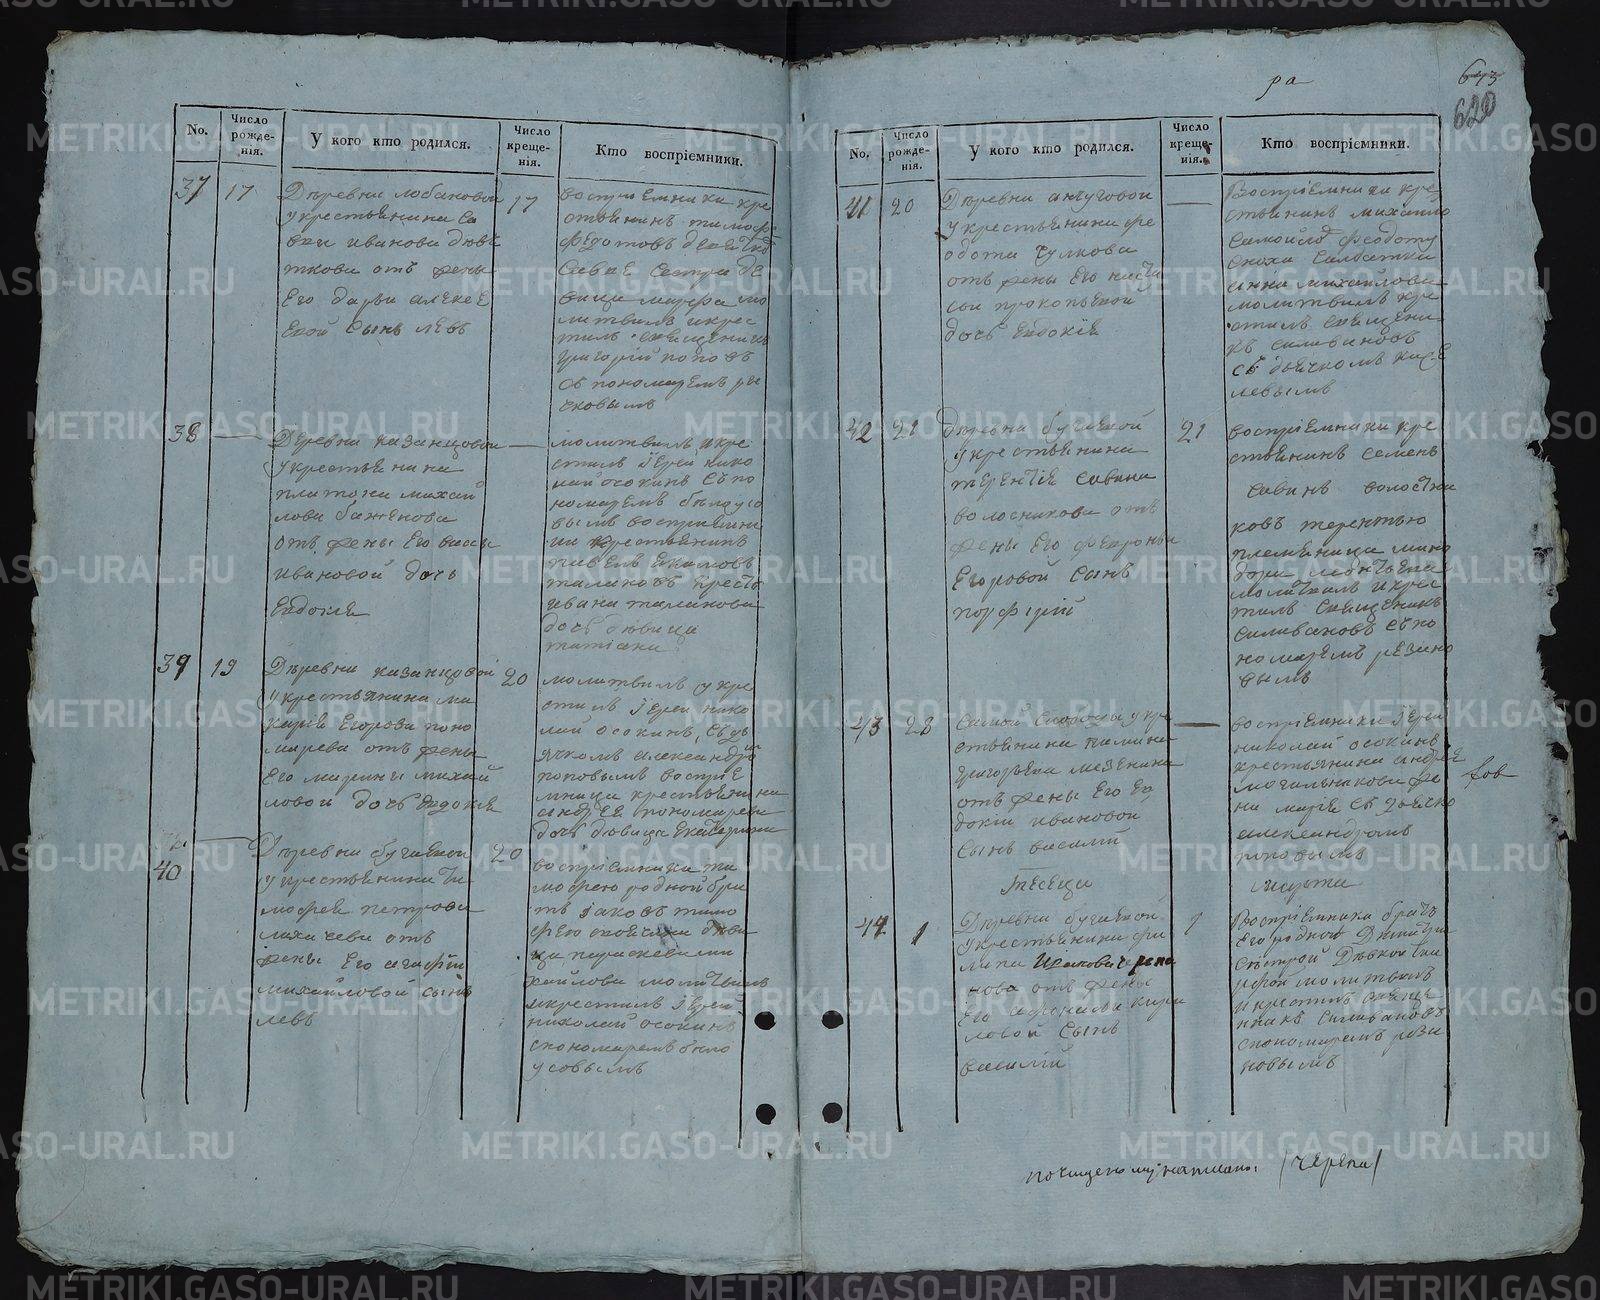 ра
613
620
No.
Число рожде- нія.
У кого кто родился.
Число креще- нія.
Кто воспріемники.
37
17
Деревни лобановой
у крестьянина са
ввы иванова дювя
ткова отъ жены
Его дарьи алексе
евой сынъ левъ
17
воспріемники кре
стьянинъ тимофе
федотовъ девятко
савве сестра де
вица марфа мо
литвилъ икрес
тилъ священникъ
григорій поповъ
съ пономаремъ ры
чковымъ
38
—
Деревни казанцовой
у крестьянина
платона михай
лова баженова
отъ жены Его вассы
ивановой дочь
Евдокея
—
молитвилъ икре
стилъ Іерей нико
лай осокинъ съ по
номаремъ былоусо
вымъ воспріемни
ки крестьянинъ
павелъ екимовъ
талановъ крест
ивана таланова
дочь девица
татіана
39
19
Деревни казанцовой
у крестьянина ма
карія Егорова поно
марева отъ жены
Его марины михай
ловой дочь Евдокея
20
молитвилъ укре
стилъ Іерей нико
лай осокинъ, съ дь
ячкомъ александро
поповымъ воспріе
мница крестьянина
андрея пономарева
дочь девица Екатерина
40
—
Деревни бугаевой
у крестьянина ти
мофея петрова
лихачева отъ
жены Его агафіи
михайловой сынъ
левъ
20
воспріемники ти
мофею родной бра
тъ Іаковъ тимо
фею
ца параскева ми
хайлова молитвилъ
икрестилъ Іерей
николай осокинъ
спономаремъ было
усовымъ
No.
Число рожде- нія.
У кого кто родился.
Число креще- нія.
Кто воспріемники.
41
20
Деревни анчуговой
у крестьянина фе
одота чулкова
отъ жены Его наста
сьи прокопьевой
дочь Евдокія
—
Воспріемники кре
стьянинъ михайло
самойлов феодоту
сноха
анна михайлова
молитвилъ кре
стилъ священни
къ силивановъ
съ дьячкомъ кисе
левымъ
42
21
Деревни бугаевой
у крестьянина
терентія савина
волосникова отъ
жены Его февроньи
Егоровой сынъ
порфирій
21
воспріемники кре
стьянинъ семенъ
савинъ волосни
ковъ терентью
племяница мино
дора леонтьева
молитвилъ икрес
тилъ священикъ
силивановъ съ по
номаремъ резано
вымъ
43
28
Самой слободы укре
стьянина памина
григорьева мезенина
отъ жены Его Ев
докіи ивановой
сынъ василій
—
воспріемники Іерей
николай осокинъ
крестьянина андрея
могильникова же
на марія съ дьячко
александромъ
поповымъ
месеца
марта
44
1
Деревни бугаевой
у крестьянина фи
липа Ивакова черепа
нова отъ жены
Его афонасьи кири
ловой сынъ
василій
1
Воспріемники братъ
Его родной
сестрой
молитвилъ
икрестилъ свяще
никъ силивановъ
спономаремъ реза
новымъ
почищеному написано: /черепа/
METRIKI.GASO-URAL.RU